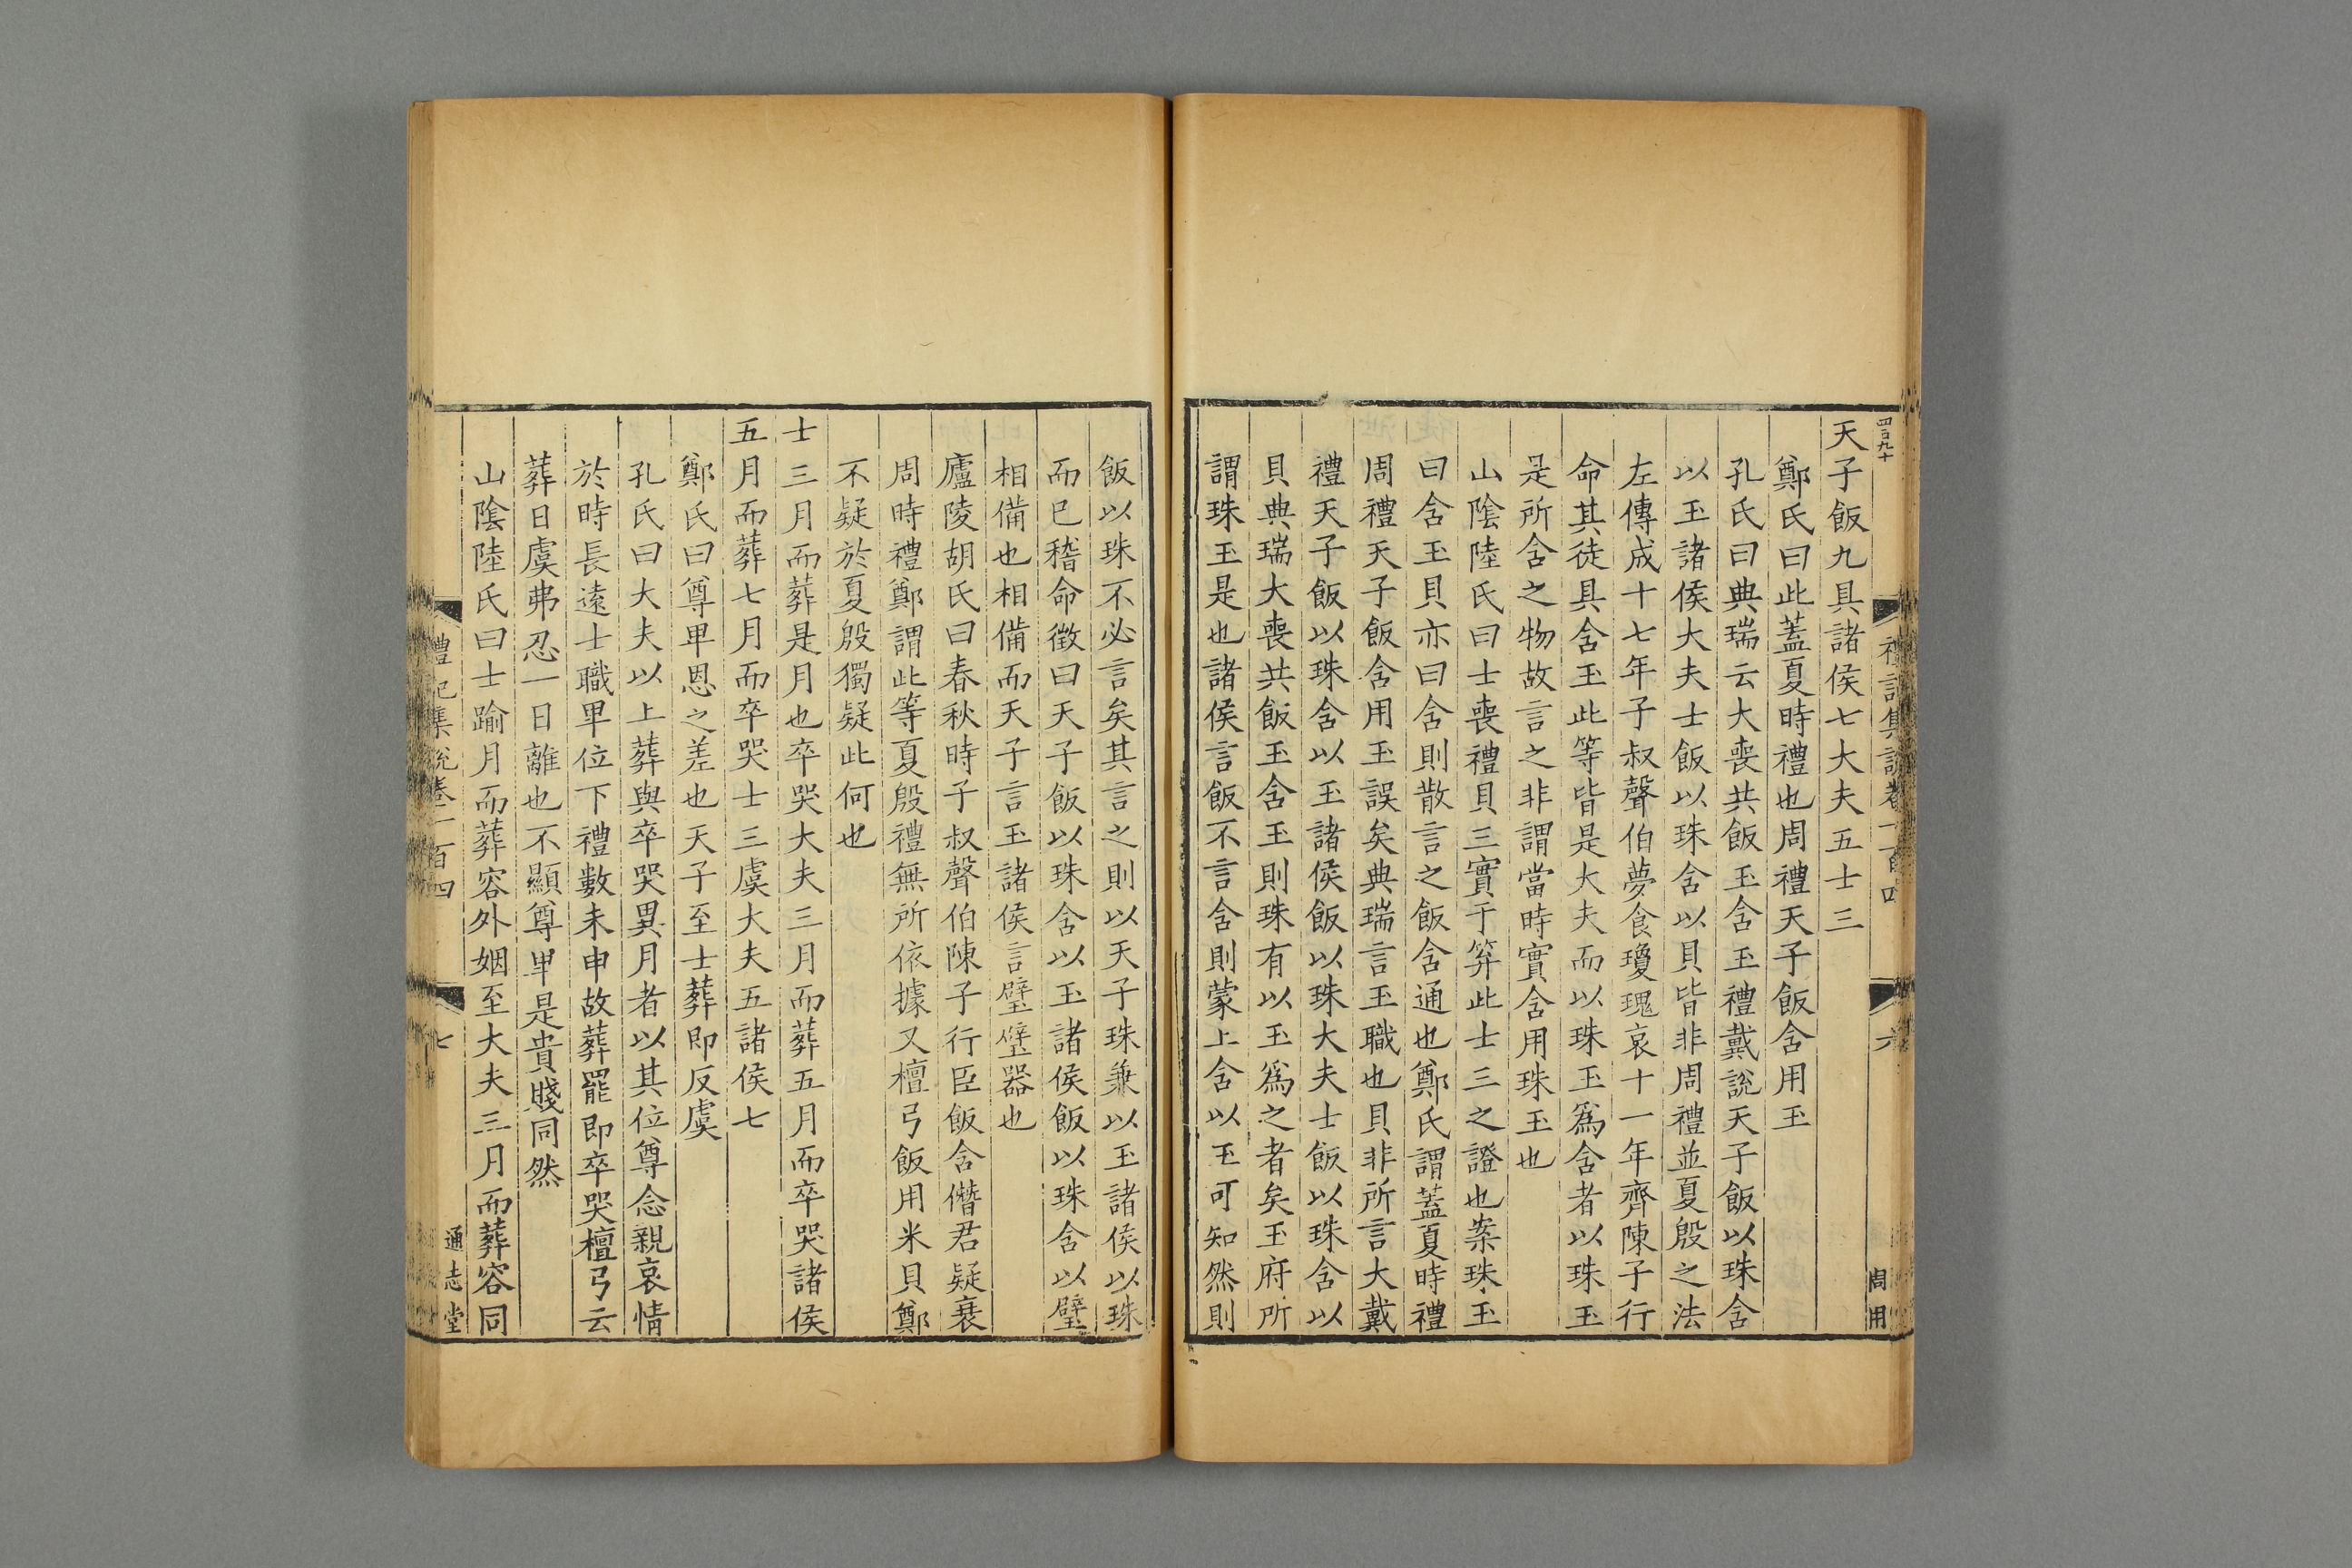 四百九十
禮記集說卷一百四
六
周用
天子飯九具諸侯七大夫五士三
鄭氏曰此蓋夏時禮也周禮天子飯含用玉
孔氏曰典瑞云大喪共飯玉含玉禮戴說天子飯以珠含
以玉諸侯大夫士飯以珠含以貝皆非周禮並夏殷之法
左傳成十七年子叔聲伯夢食瓊瑰哀十一年齊陳子行
命其徒具含玉此等皆是大夫而以珠玉爲含者以珠玉
是所含之物故言之非謂當時實含用珠玉也
山隂陸氏曰士喪禮貝三實于筭此士三之證也案珠玉
曰含玉貝亦曰含則散言之飯含通也鄭氏謂蓋夏時禮
周禮天子飯含用玉誤矣典瑞言玉職也貝非所言大戴
禮天子飯以珠含以玉諸侯飯以珠大夫士飯以珠含以
貝典瑞大喪共飯玉含玉則珠有以玉爲之者矣玉府所
謂珠玉是也諸侯言飯不言含則蒙上含以玉可知然則
飯以珠不必言矣其言之則以天子珠兼以玉諸侯以珠
而已稽命徴曰天子飯以珠含以玉諸侯飯以珠含以璧
相備也相備而天子言玉諸侯言璧璧器也
廬陵胡氏曰春秋時子叔聲伯陳子行臣飯含僭君疑衰
周時禮鄭謂此等夏殷禮無所依據又檀弓飯用米貝鄭
不疑於夏殷獨疑此何也
士三月而葬是月也卒哭大夫三月而葬五月而卒哭諸侯
五月而葬七月而卒哭士三虞大夫五諸侯七
鄭氏曰尊卑恩之差也天子至士葬即反虞
孔氏曰大夫以上葬與卒哭異月者以其位尊念親哀情
於時長逺士職卑位下禮數未申故葬罷即卒哭檀弓云
葬日虞弗忍一日離也不顯尊卑是貴賤同然
山隂陸氏曰士踰月而葬容外姻至大夫三月而葬容同
禮記集說卷一百四
七
通志堂